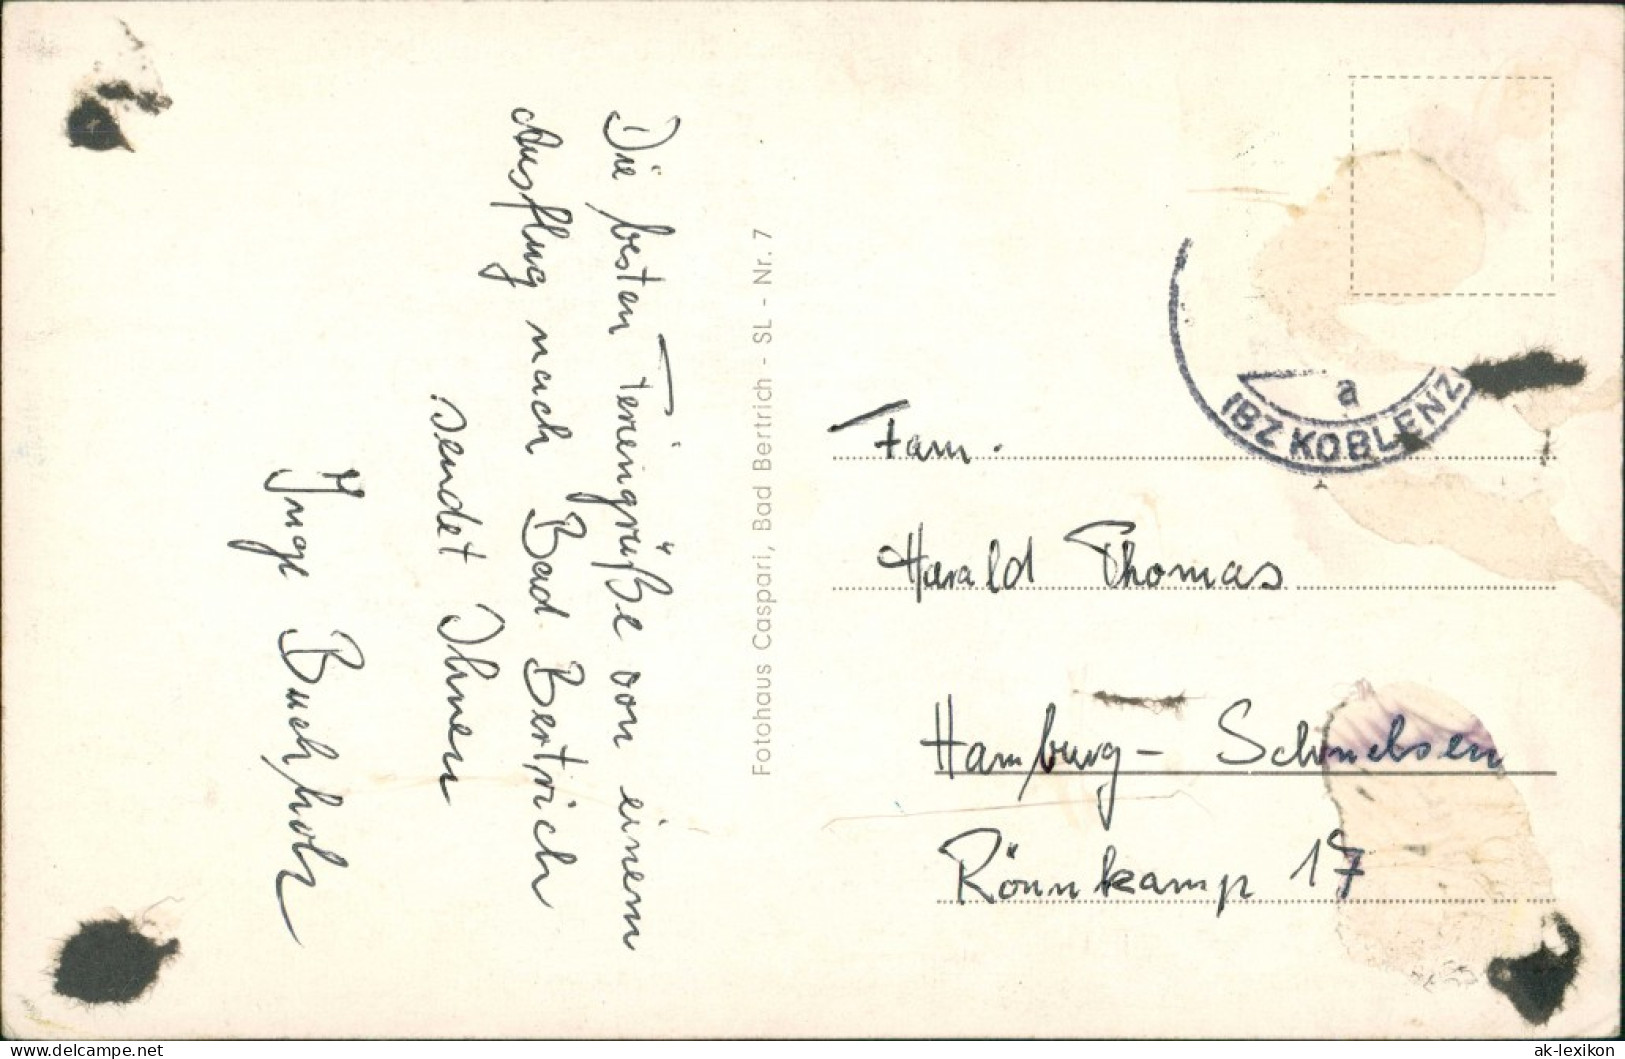 Die besten Feriengrüße von einem
Ausflug nach Bad Bertrich
sendet Ihnen
Inge Buchholz
Fotohaus Caspari, Bad Bertrich - SL - Nr. 7
(BZ KOBLENZ
a
Fam.
Harald Thomas
Hamburg - Schnelsen
Rönnkamp 17
delcampe.net
The Collector's Marketplace
ak-lexikon